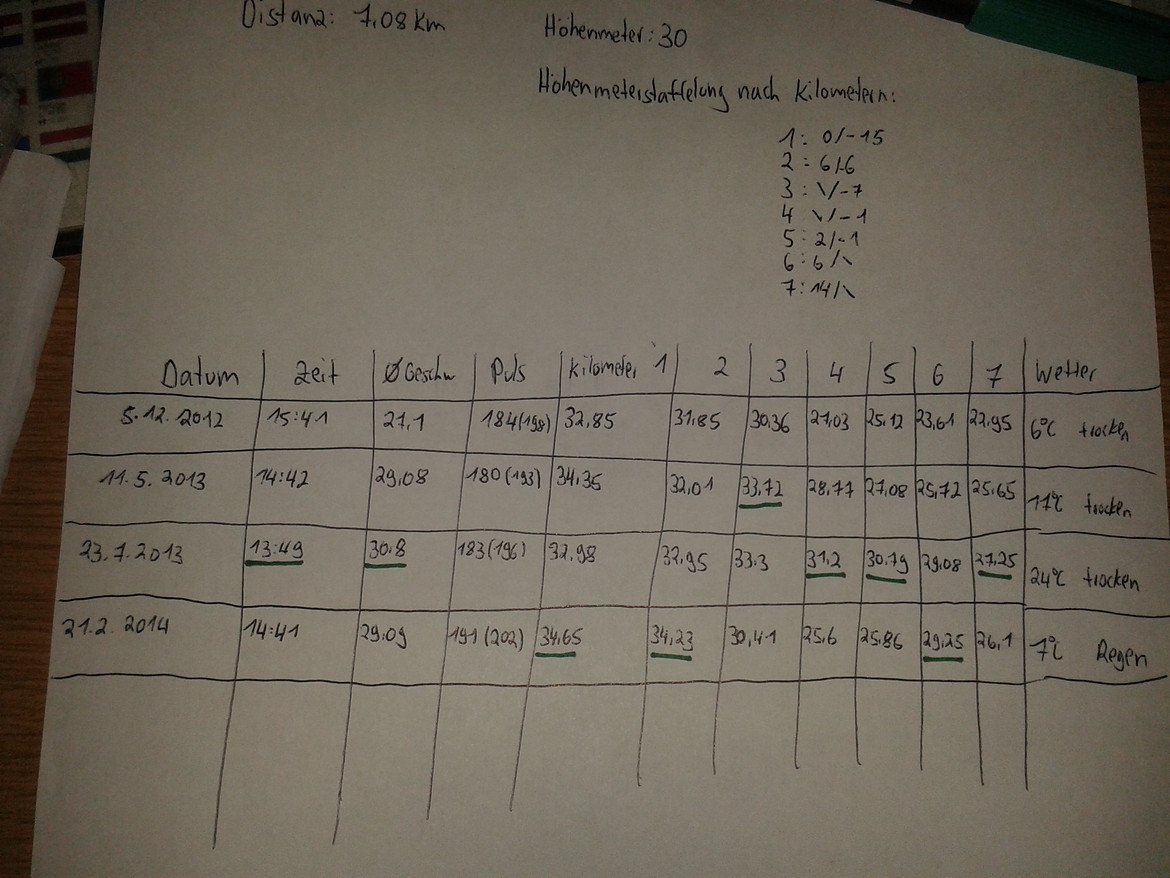 Distanz: 7,08 km
Höhenmeter: 30
Höhenmeterstaffelung nach Kilometern:
1: 0/-15
2: 6/-6
3: \/-7
4 \/-1
5: 2/-1
6: 6/\
7: 14/\
Datum Zeit ØGeschw Puls Kilometer 1 2 3 4 5 6 7 Wetter
5.12.2012 15:41 27,1 184(198) 32,85 31,85 30,36 27,03 25,12 23,61 22,95 6°C trocken
11.5.2013 14:42 29,08 180(193) 34,35 32,01 33,72 28,77 27,08 25,72 25,65 17°C trocken
23.7.2013 13:49 30,8 183(196) 32,98 32,95 33,3 31,2 30,79 29,08 27,25 24°C trocken
21.2.2014 14:41 29,09 191(202) 34,65 34,23 30,41 25,6 25,86 29,25 26,1 7°C Regen